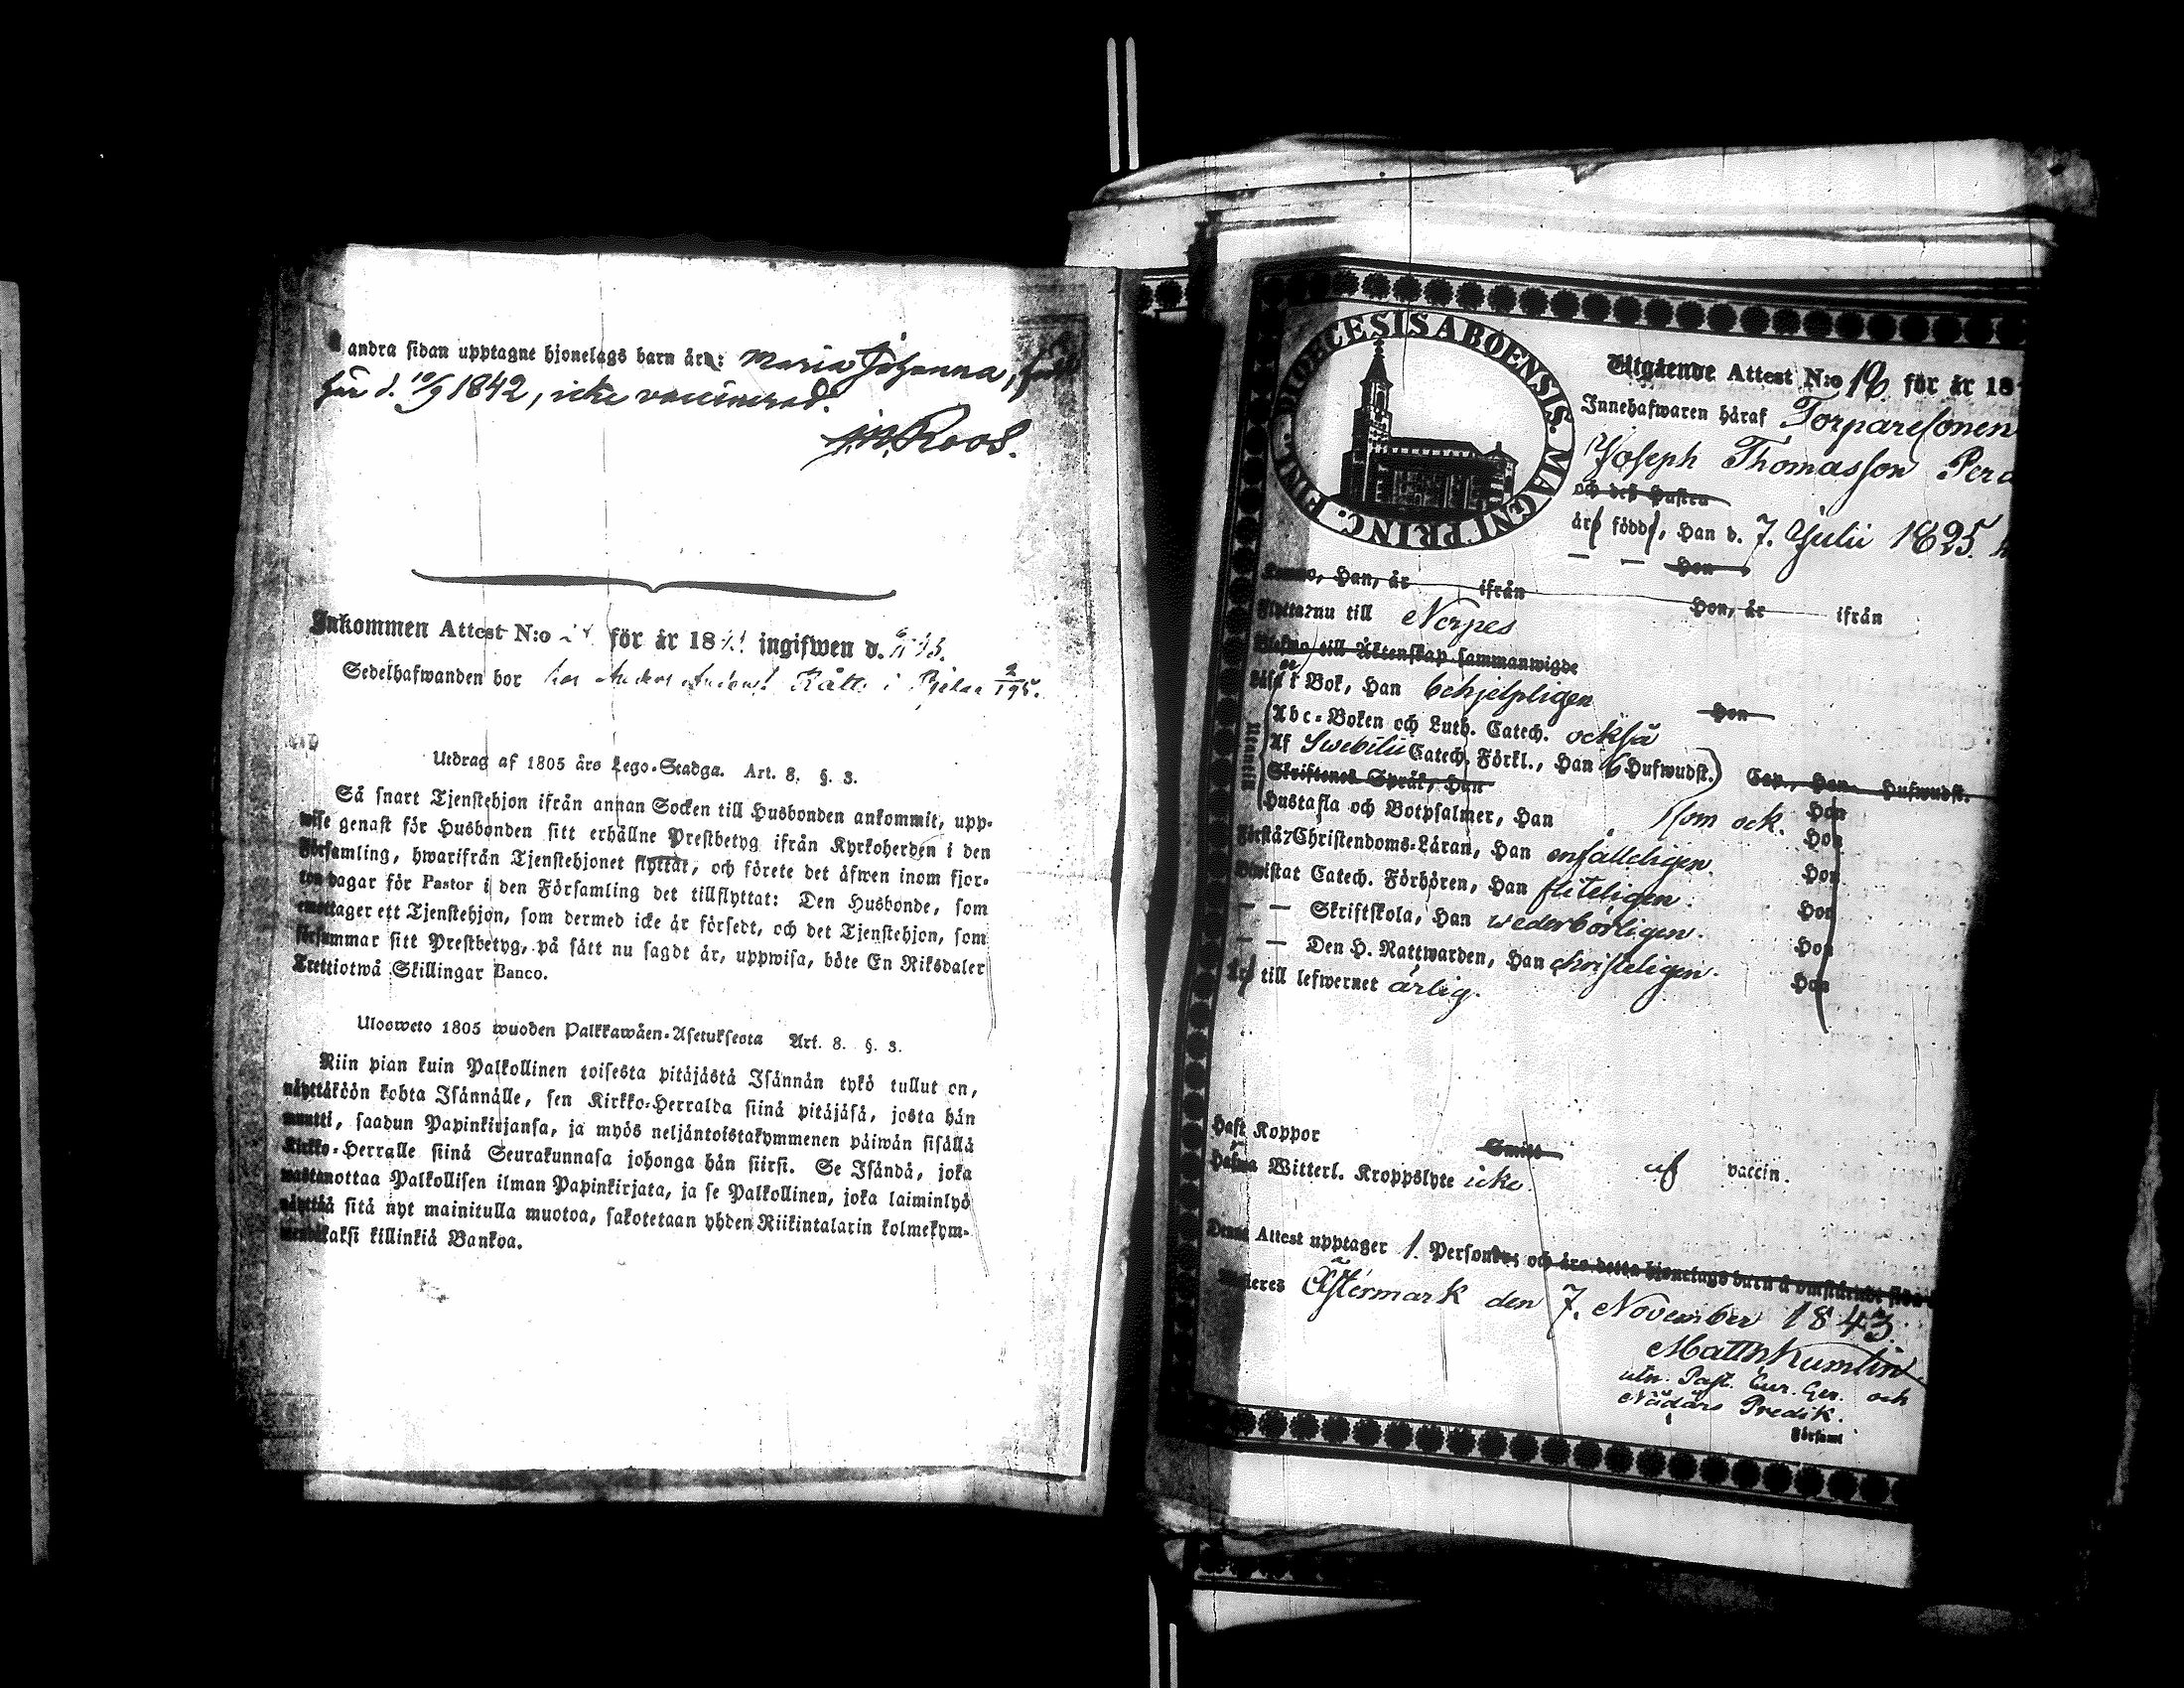 andra sidan upptagne hjonelags barn är: Maria Johanna, född
här d. 10/9 1842, icke vaccinerad.
J.W. Roos.
Inkommen Attest N:o för år 18 ingifwen d.
Sedelhafwanden bor hos Anders i
Utdrag af 1805 års Lego-Stadga. Art. 8. §. 3.
Så snart Tjenstehjon ifrån annan Socken till Husbonden ankommit, upp-
wise genast för Husbonden sitt erhållne Prestbetyg ifrån Kyrkoherden i den
Församling, hwarifrån Tjenstehjonet flyttat, och förete det äfwen inom fjor-
ton dagar för Pastor i den Församling det tillflyttat: Den Husbonde, som
emottager ett Tjenstehjon, som dermed icke är försedt, och det Tjenstehjon, som
försummar sitt Prestbetyg, på sätt nu sagdt är, uppwisa, böte En Riksdaler
Trettiotwå Skillingar Banco.
Ulosweto 1805 wuoden Palkkawäen-Asetuksesta Art. 8. §. 3.
Niin pian kuin Palkollinen toisesta pitäjästä Isännän tykö tullut on,
näyttäköön kohta Isännälle, sen Kirkko-Herralda siinä pitäjäsä, josta hän
muutti, saadun Papinkirjansa, ja myös neljäntoistakymmenen päiwän sisällä
Kirkko-Herralle siinä Seurakunnasa johonga hän siirsi. Se Isändä, joka
wastanottaa Palkollisen ilman Papinkirjata, ja se Palkollinen, joka laiminlyö
näyttää sitä nyt mainitulla muotoa, sakotetaan yhden Riikintalarin kolmekym-
mendäkaksi killinkiä Bankoa.
DIOECESIS ABOENSIS. MAGNI PRINC. FINL.
Utgående Attest N:o 18 för år 18
Innehafwaren häraf Torparesonen
Joseph Thomasson
och deß Hustru
äro födde, Han d. 7. Julii 1825.
— — Hon
Han, år ifrån Hon, år ifrån
Flytta nu till Nerpes
till Äktenskap sammanwigde
Läsa i Bok, Han behjelpligen Hon
Utantill
Abc-Boken och Luth. Catech. också
Af Svebilii Catech. Förkl., Han 6 Hufwudst. Cap., Han Hufwudst.
Skriftenes Språk, Han Hon
Hustafla och Botpsalmer, Han som ock. Hon
Förstå Christendoms-Läran, Han enfalleligen. Hon
Bewistat Catech. Förhören, Han fliteligen. Hon
— — Skriftskola, Han wederbörligen. Hon
— — Den H. Nattwarden, Han christeligen. Hon
Äro till lefwernet ärlig.
Haft Koppor Smitt uf vaccin.
Hafwa Witterl. Kroppslyte icke.
Denna Attest upptager 1. Personer, och äro detta hjonelags barn å omstående sida
Östermark den 7. November 1843.
Matth Kumlin
utn. Past. Cur. Ger. och
Nådårs Predik.
Församl